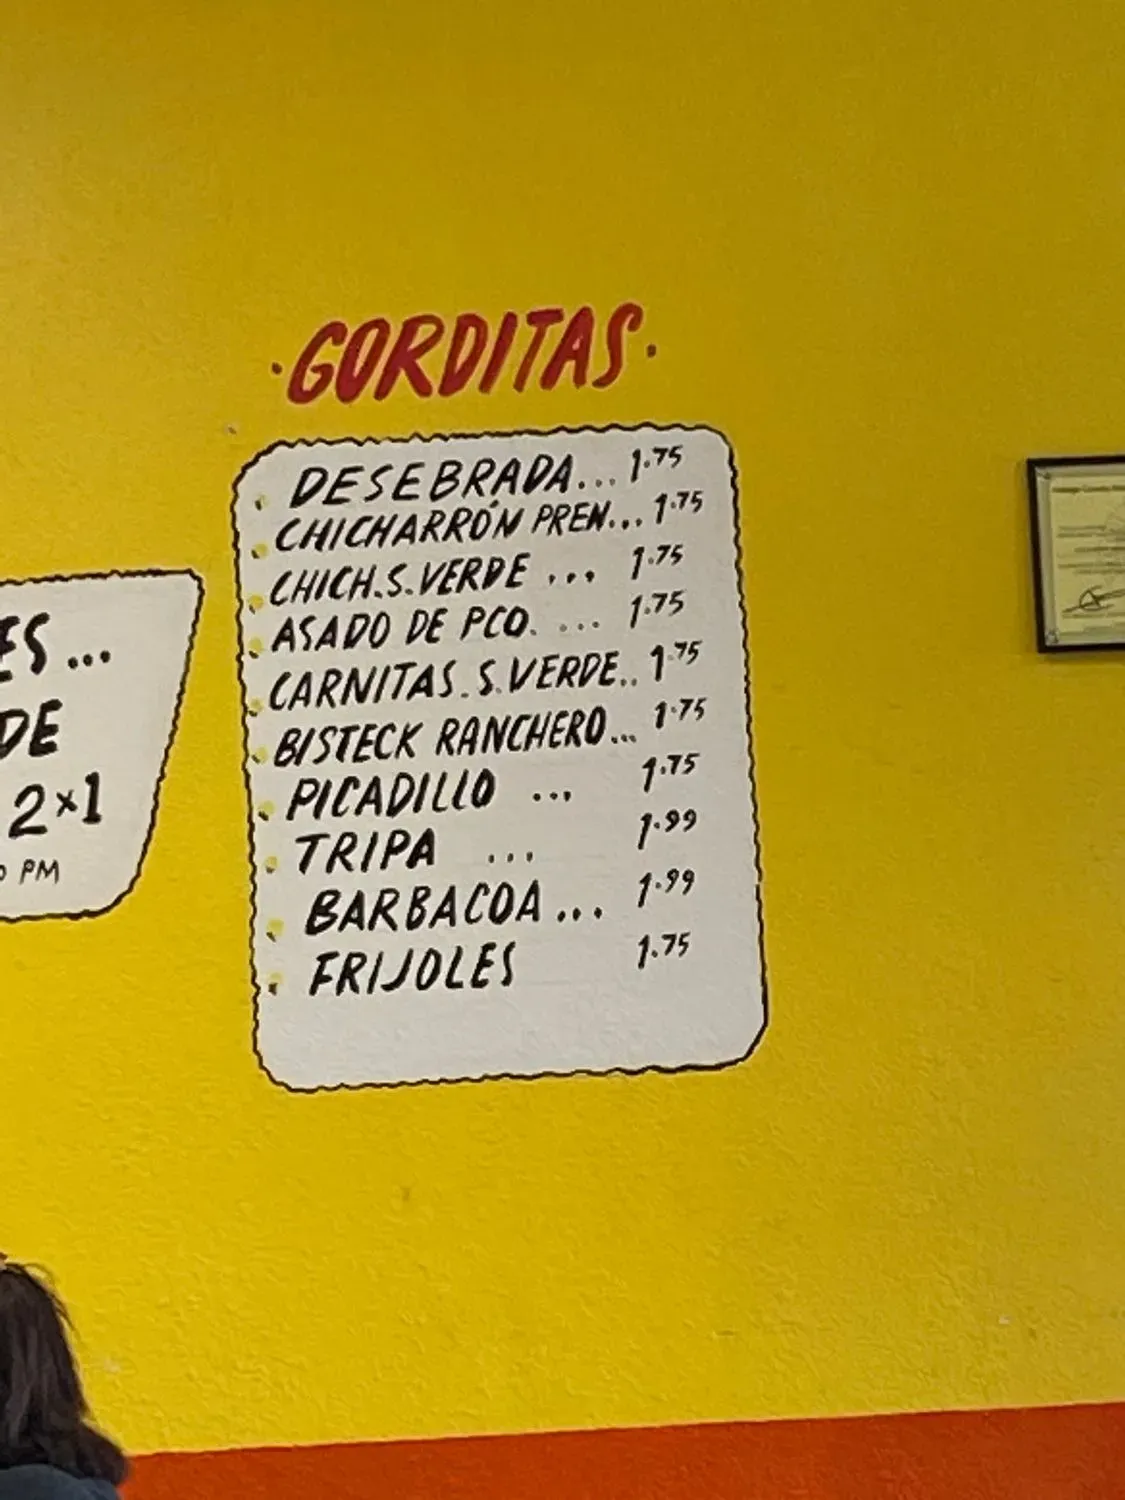 ·GORDITAS·
DESEBRADA... 1.75
CHICHARRÓN PREN... 1.75
CHICH.S.VERDE ... 1.75
ASADO DE PCO. ... 1.75
CARNITAS. S.VERDE.. 1.75
BISTECK RANCHERO... 1.75
PICADILLO ... 1.75
TRIPA ... 1.99
BARBACOA ... 1.99
FRIJOLES 1.75
ES...
DE
2x1
PM